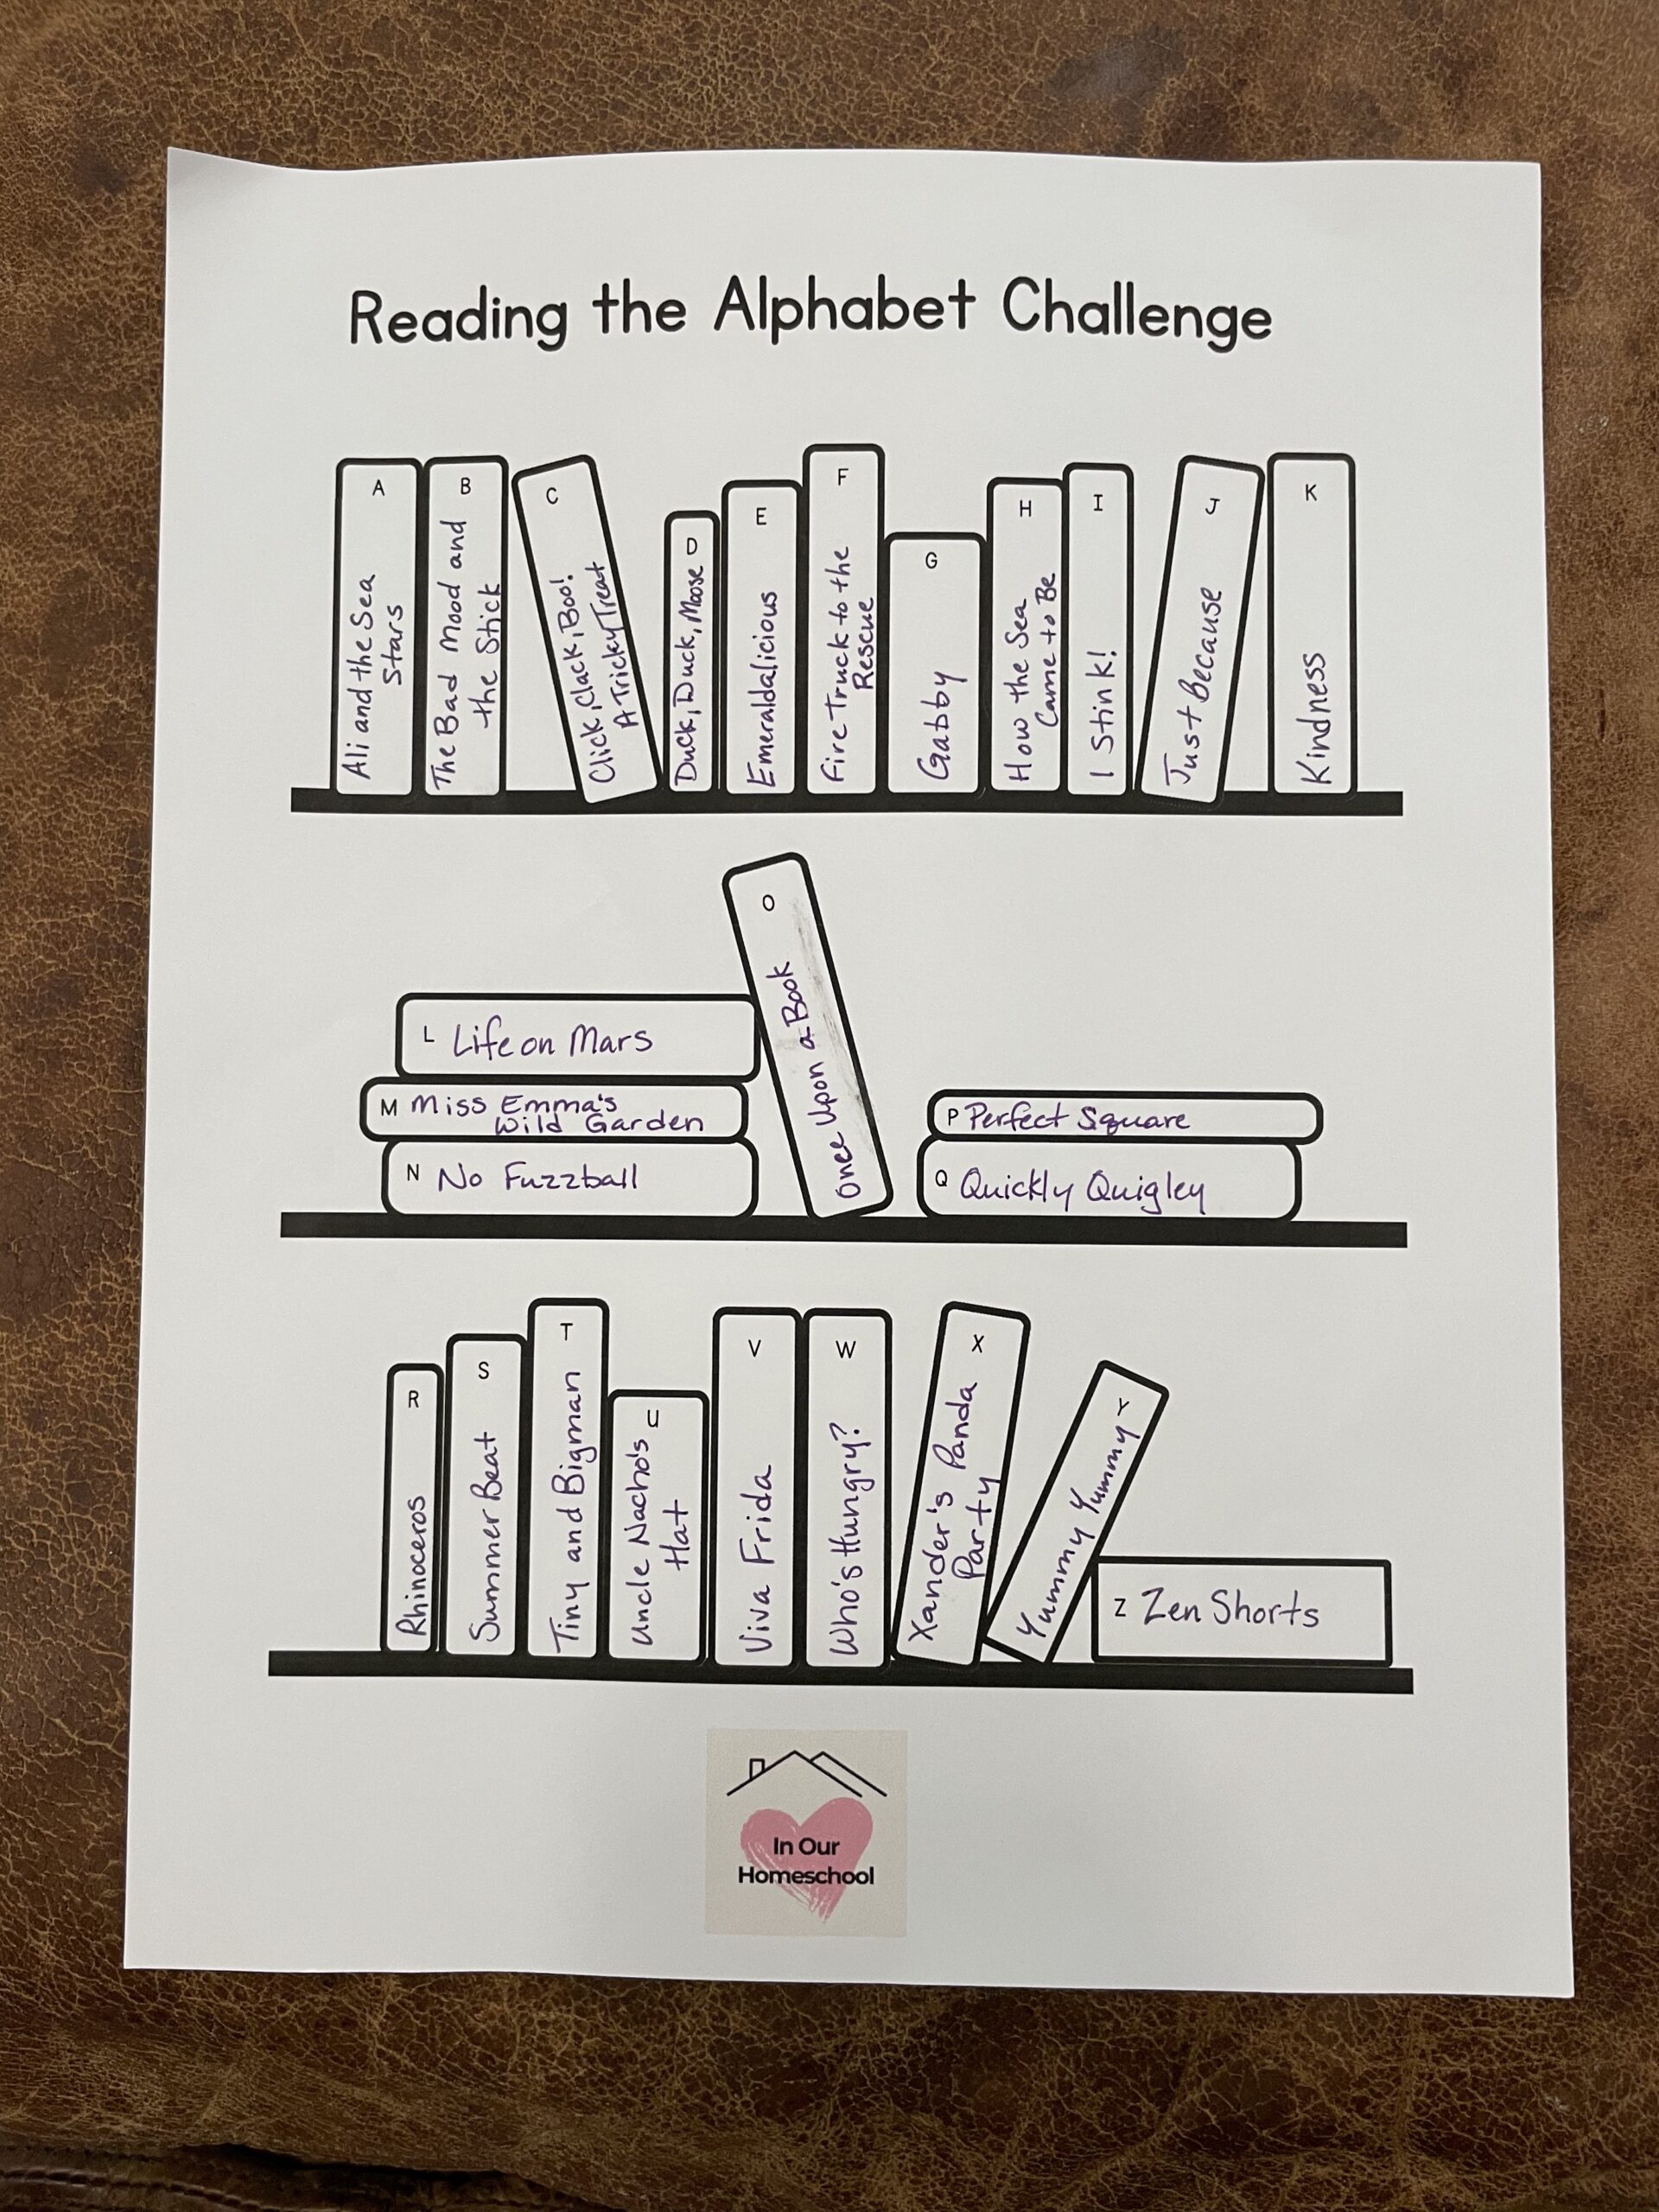 Reading the Alphabet Challenge
A
Ali and the Sea
Stars
B
The Bad Mood and
the Stick
C
Click, Clack, Boo!
A Tricky Treat
D
Duck, Duck, Moose
E
Emeraldalicious
F
Fire Truck to the
Rescue
G
Gabby
H
How the Sea
Came to Be
I
I Stink!
J
Just Because
K
Kindness
L Life on Mars
M Miss Emma's
Wild Garden
N No Fuzzball
O
Once Upon a Book
P Perfect Square
Q Quickly Quigley
R
Rhinoceros
S
Summer Beat
T
Tiny and Bigman
U
Uncle Nacho's
Hat
V
Viva Frida
W
Who's Hungry?
X
Xander's Panda
Party
Y
Yummy Yummy
Z Zen Shorts
In Our
Homeschool